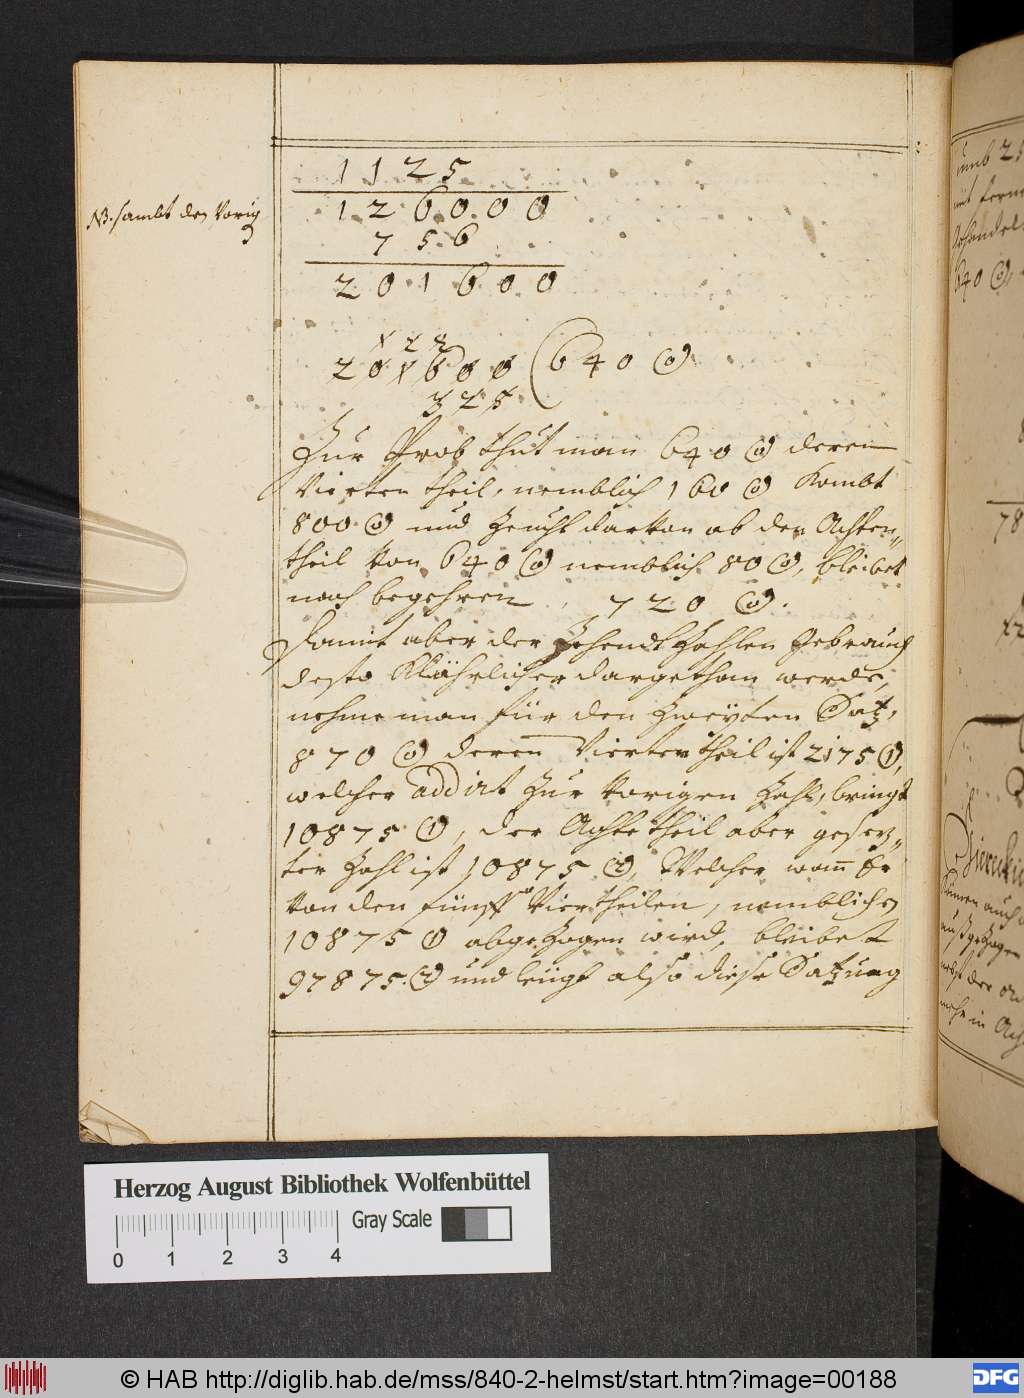 NB. sambt den Vorig
1 1 2 5
1 2 6 0 0 0
7 5 6
2 0 1 6 0 0
2 0 1 6 0 0 ( 6 4 0 ⓪
3 2 5
Zur Prob thut man 640 ⓪ deren
Vierten theil, nemblich 160 ⓪ kombt
800 ⓪ und Zeucht darvon ab den Achten
theil von 640 ⓪ nemblich 80 ⓪, bleibet
nach begehren 720 ⓪.
Damit aber der Zehendt Zahlen Gebrauch
desto Klährlicher dargethan werde,
nehme man für den Zweyten Satz,
870 ⓪ deren Viertertheil ist 2175 ①,
welcher addirt Zur vorigen Zahl, bringt
10875 ①, der Achte theil aber gesetz„
ter Zahl ist 10875 ②, Welcher wann Er
von den fünff Viertheilen, nemblichen
10875 ① abgezogen wird, bleibet
97875 ② und leügt also diese Satzung
umb 25
640 ⓪,
78
Herzog August Bibliothek Wolfenbüttel
Gray Scale
0 1 2 3 4
© HAB http://diglib.hab.de/mss/840-2-helmst/start.htm?image=00188
DFG